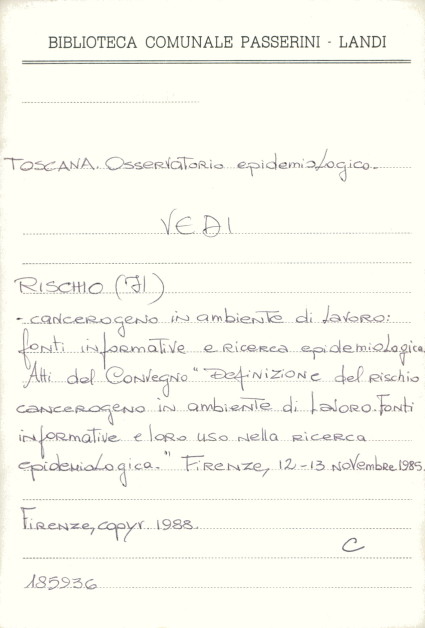 BIBLIOTECA COMUNALE PASSERINI - LANDI
TOSCANA. Osservatorio epidemiologico.
VEDI
RISCHIO (Il)
- cancerogeno in ambiente di lavoro:
fonti informative e ricerca epidemiologica.
Atti del Convegno "Definizione del rischio
cancerogeno in ambiente di lavoro. Fonti
informative e loro uso nella ricerca
epidemiologica." Firenze, 12-13 novembre 1985.
Firenze, copyr. 1988.
C
185936